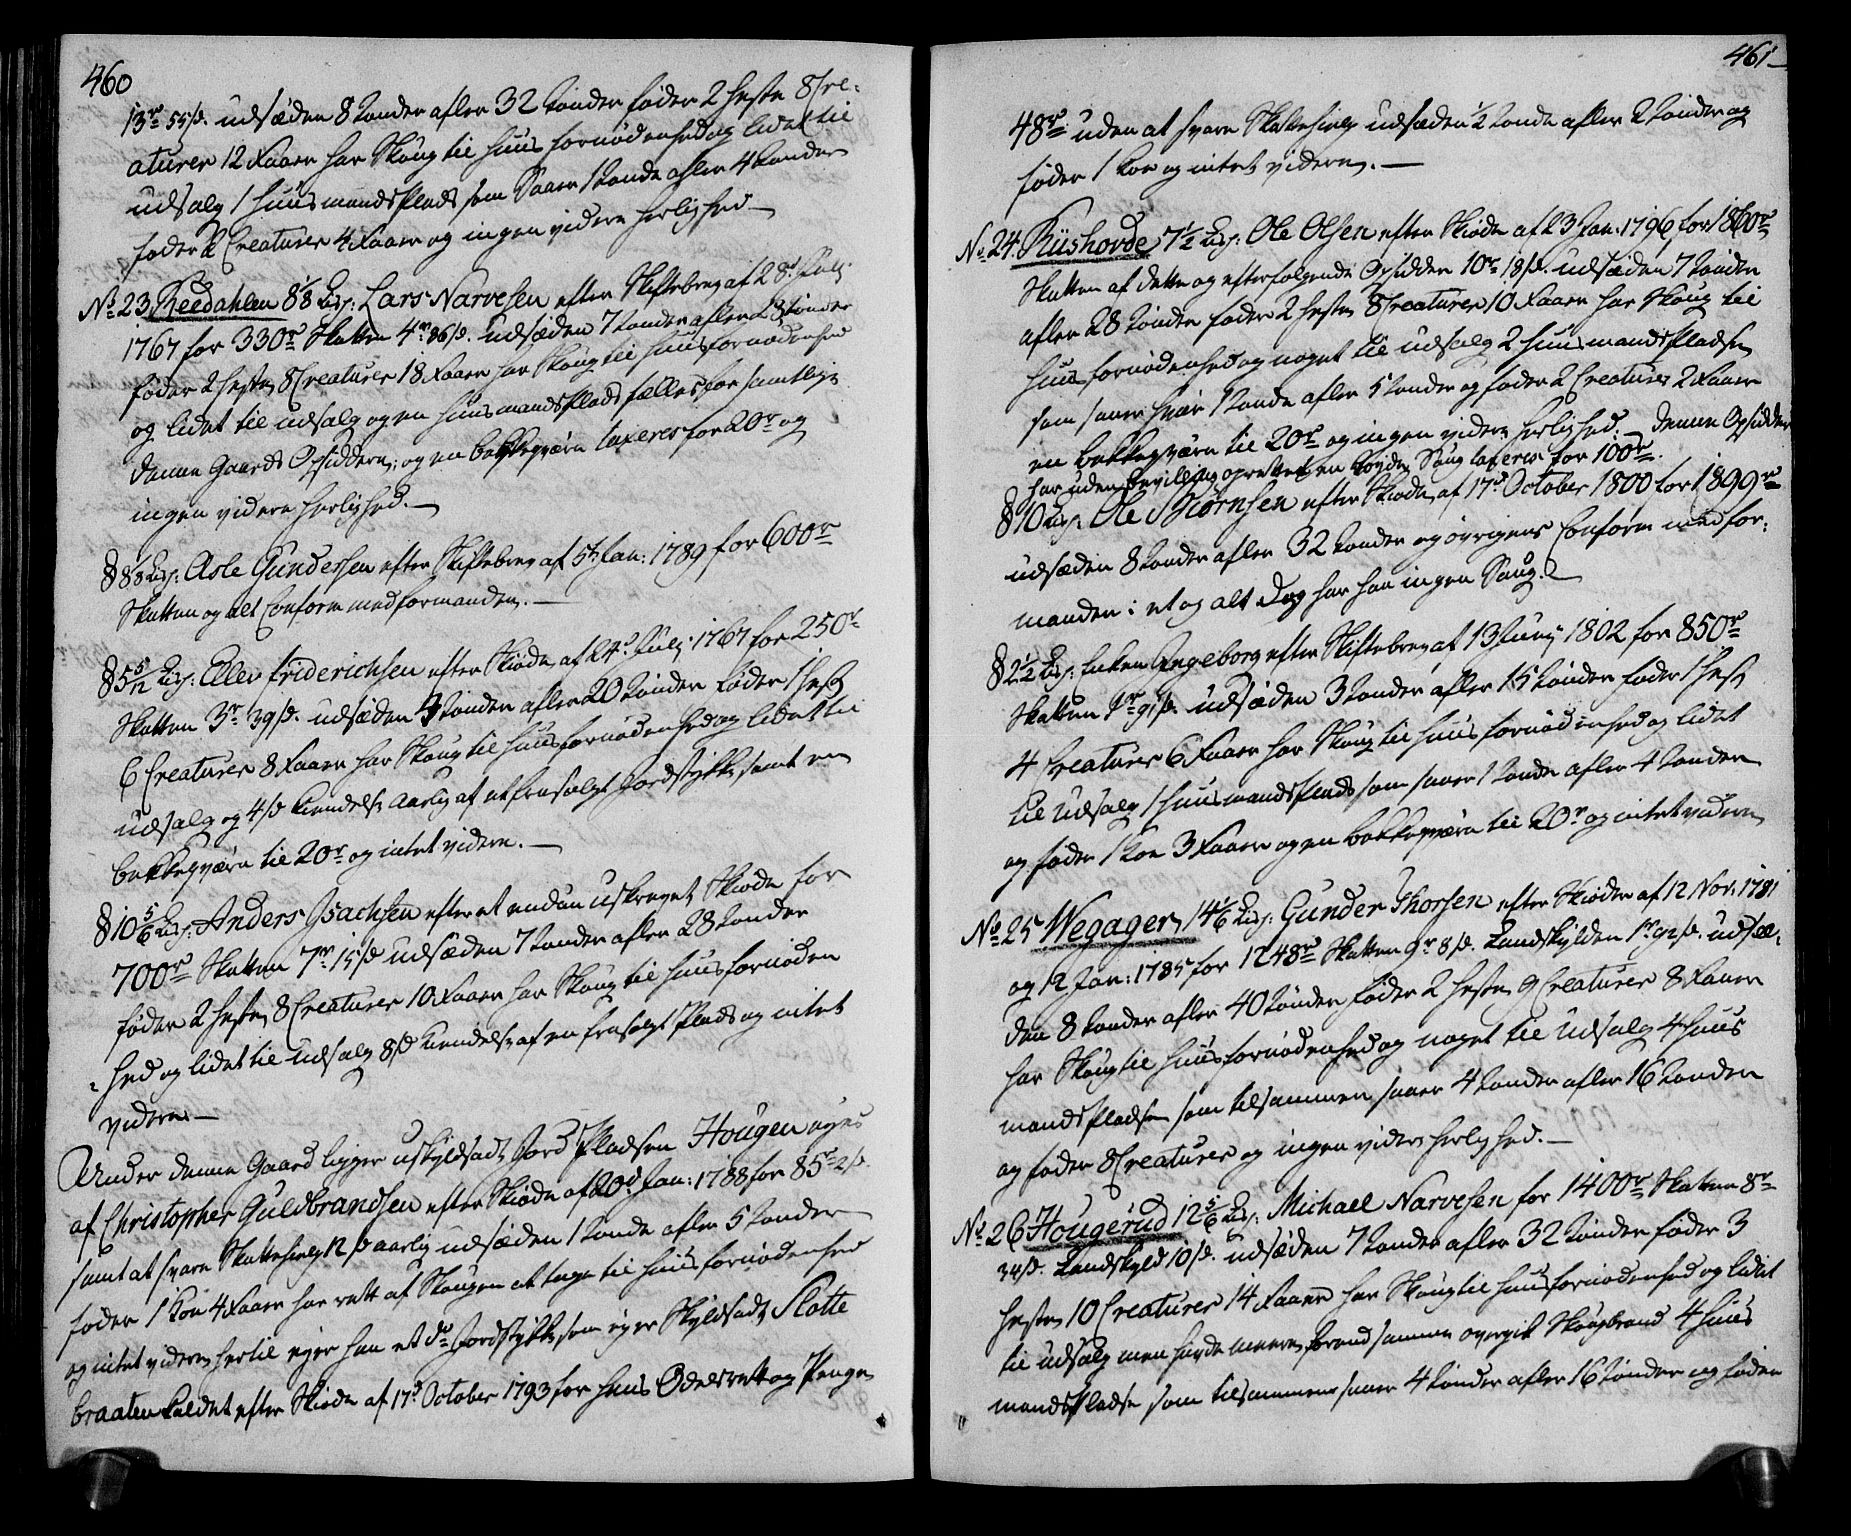 460
13rd 55s. udsæden 8 tønder afler 32 tønder føder 2 heste 8 Cre-
aturer 12 Faarer har Skoug til huus fornødenhed og lidet til
udsalg 1 huusmandsPlads som Saaer 1 tønde afler 4 tønder
føder 2 Creaturer 4 Faarer og ingen videre herlighed. —
No 23 Reedahlen 8 1/8 Lis: Lars Narvesen efter Skiftebrev af 28d July
1767 for 330rd Skatten 4rd 86s. udsæden 7 tønder afler 28 tønder
føder 2 heste 8 Creaturer 18 Faarer har Skoug til huusfornødenhed
og lidet til udsalg og en huusmandsPlads fælles for samtlige
denne Gaards Opsiddere; og en bekkeqværn taxeres for 20rd og
ingen videre herlighed. —
§ 8 1/8 Lis: Asle Gundersen efter Skiftebrev af 5t Jan: 1789 for 600rd
Skatten og alt Conform med formanden. —
§ 5 5/12 Lis: Ellev Friderichsen efter Skiøde af 24d July 1767 for 250rd
Skatten 3rd 39s. udsæden 4 tønder afler 20 tønder føder 1 hest
6 Creaturer 8 Faarer har Skoug til huusfornødenhed og lidet til
udsalg og 4s kiendelse aarlig af et frasolgt Jordstykke, samt en
bekkeqværn til 20rd og intet videre. —
§ 10 5/6 Lis: Anders Isachsen efter et endnu uskrevet Skiøde for
700rd Skatten 7rd 15s udsæden 7 tønder afler 28 tønder
føder 2 heste 8 Creaturer 10 Faarer har Skoug til huusfornøden
-hed og lidet til udsalg 8s kiendelse af en frasolgt Plads og intet
videre. —
Under denne Gaard ligger uskyldsadt Jord Pladsen Hougen eyes
af Christopher Guldbrandsen efter Skiøde af 20d Jan: 1788 for 85rd 2s.
samt at svare Skattehielp 12s aarlig udsæden 1 tønde afler 5 tønder
føder 1 Koe 4 Faarer har rett af Skougen at tage til huusfornødenhed
og intet videre, hertil eyer han et do Jordstykke, som eyer Skyldsadt, Slotte
braaten kaldet efter Skiøde af 17d October 1793 for hans Odelsrett og Penge
461
48rd uden at svare Skattehielp udsæden 1/2 tønde afler 2 tønder og
føder 1 koe og intet videre. —
No 24. Riishovde 7 1/2 Lis: Ole Olsen efter Skiøde af 23 Jan: 1796 for 1860rd
Skatten af dette og efterfølgende Opsidder 10rd 18s. udsæden 7 tønder
afler 28 tønder føder 2 heste 8 Creaturer 10 Faarer har Skoug til
huusfornødenhed og noget til udsalg 2 huusmandsPladser
som saaer hver 1 tønde afler 5 tønder og føder 2 Creaturer 2 Faarer
en bekkeqværn til 20rd og ingen videre herlighed. — denne Opsidder
har uden bevilling oprettet en bøyde Saug taxeres for 100rd.
§ 10 Lis: Ole Biørnsen efter Skiøde af 17d October 1800 for 1899rd
udsæden 8 tønder afler 32 tønder og øvrigens Conform med for-
manden i et og alt dog har han ingen Saug. —
§ 2 1/2 Lis: Enken Ingeborg efter Skiftebrev af 13 Juny 1802 for 850rd
Skatten 1rd 91s. udsæden 3 tønder afler 15 tønder føder 1 hest
4 Creaturer 6 Faarer har Skoug til huus fornødenhed og lidet
til udsalg 1 huusmandsPlads som saaer 1 tønde afler 4 tønder
og føder 1 Koe 3 Faarer og en bekkeqværn til 20rd og intet videre
No 25 Wegager 14 1/6 Lis: Gunder Thorsen efter Skiøder af 12 Nov: 1781
og 12 Jan: 1785 for 1248rd Skatten 9rd 8s. Landskylden 1rd 92s. udsæ-
den 8 tønder afler 40 tønder føder 2 heste 9 Creaturer 8 Faarer
har Skoug til huusfornødenhed og noget til udsalg 4 huus
mandsPladser som tilsammen saaer 4 tønder afler 16 tønder
og føder 8 Creaturer og ingen videre herlighed. —
No 26 Hougerud 12 5/6 Lis: Michael Narvesen for 1400rd Skatten 8rd
34s. Landskyld 10s. udsæden 7 tønder afler 32 tønder føder 3
heste 10 Creaturer 14 Faarer har Skoug til huusfornødenhed og lidet
til udsalg men havde meere, forend samme overgik Skougbrand 4 huus
mandsPladse som tilsammen saaer 4 tønder afler 16 tønder og føder